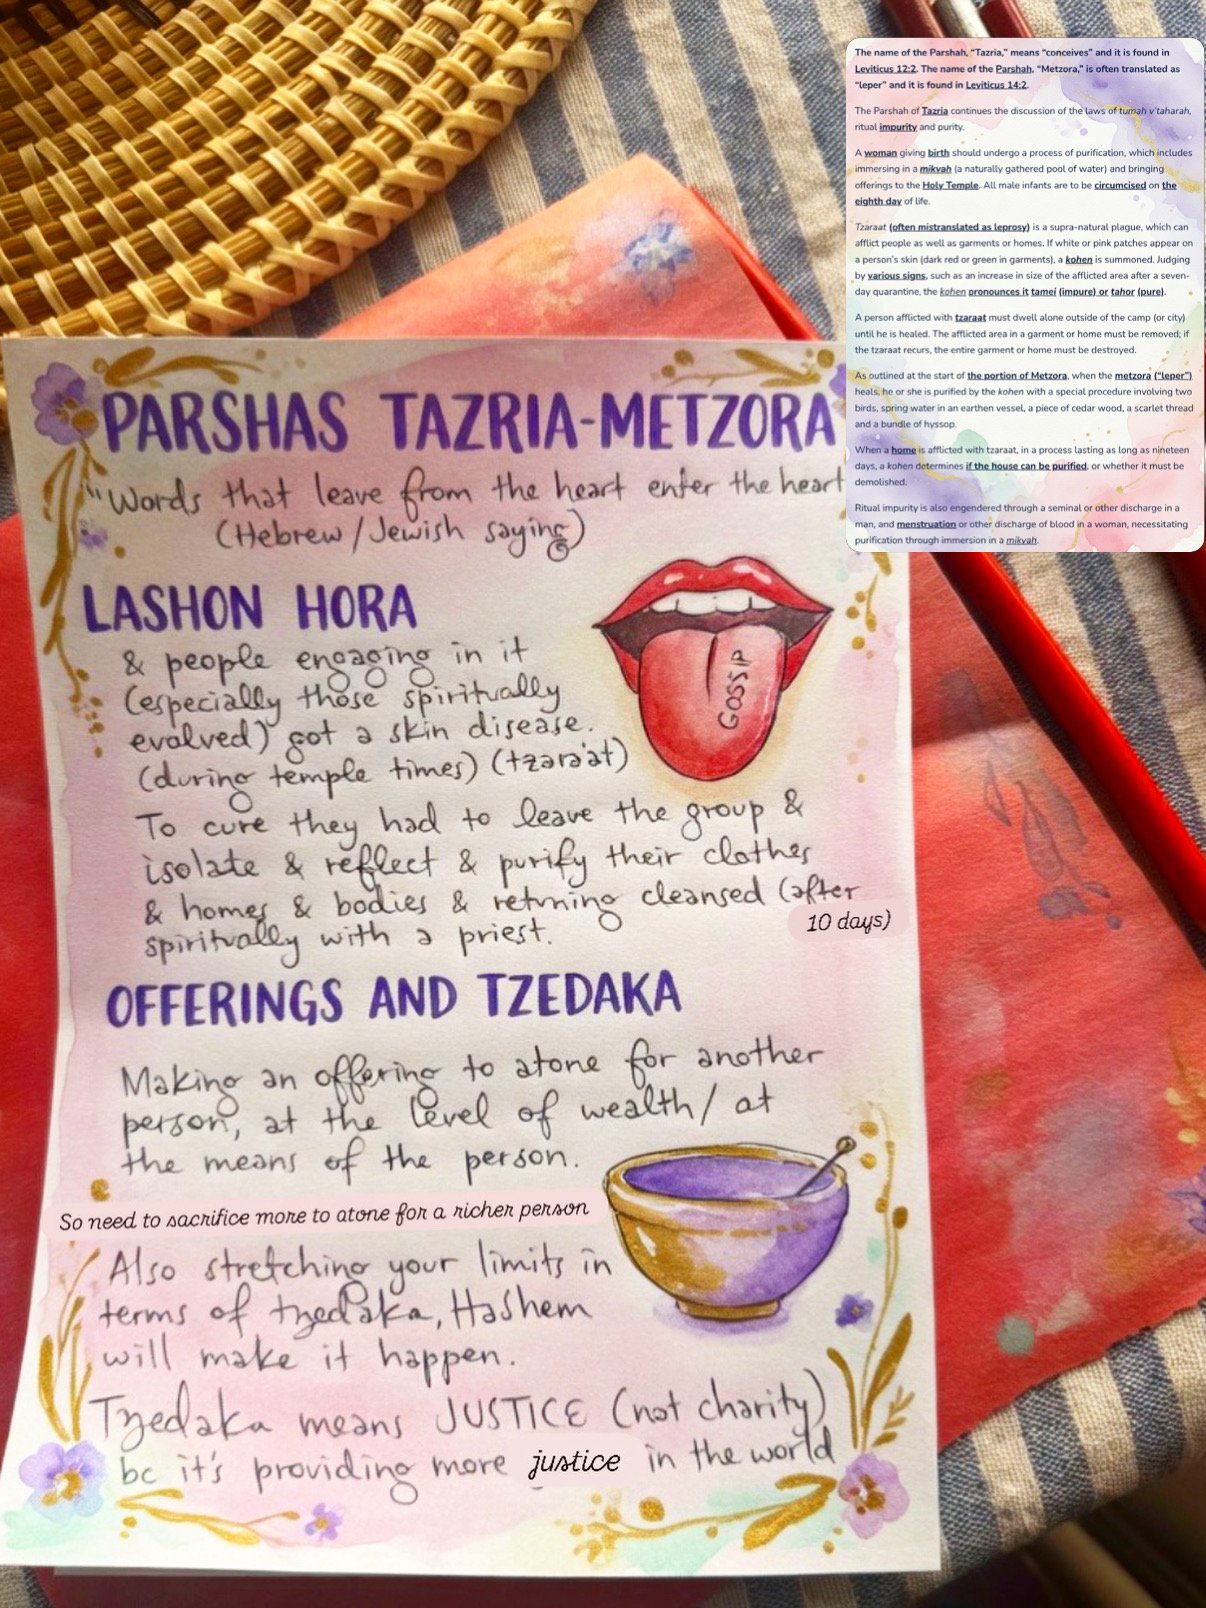 The name of the Parshah, “Tazria,” means “conceives” and it is found in
Leviticus 12:2. The name of the Parshah, “Metzora,” is often translated as
“leper” and it is found in Leviticus 14:2.
The Parshah of Tazria continues the discussion of the laws of tumah v’taharah,
ritual impurity and purity.
A woman giving birth should undergo a process of purification, which includes
immersing in a mikvah (a naturally gathered pool of water) and bringing
offerings to the Holy Temple. All male infants are to be circumcised on the
eighth day of life.
Tzaraat (often mistranslated as leprosy) is a supra-natural plague, which can
afflict people as well as garments or homes. If white or pink patches appear on
a person’s skin (dark red or green in garments), a kohen is summoned. Judging
by various signs, such as an increase in size of the afflicted area after a seven-
day quarantine, the kohen pronounces it tamei (impure) or tahor (pure).
A person afflicted with tzaraat must dwell alone outside of the camp (or city)
until he is healed. The afflicted area in a garment or home must be removed; if
the tzaraat recurs, the entire garment or home must be destroyed.
As outlined at the start of the portion of Metzora, when the metzora (“leper”)
heals, he or she is purified by the kohen with a special procedure involving two
birds, spring water in an earthen vessel, a piece of cedar wood, a scarlet thread
and a bundle of hyssop.
When a home is afflicted with tzaraat, in a process lasting as long as nineteen
days, a kohen determines if the house can be purified, or whether it must be
demolished.
Ritual impurity is also engendered through a seminal or other discharge in a
man, and menstruation or other discharge of blood in a woman, necessitating
purification through immersion in a mikvah.
PARSHAS TAZRIA-METZORA
"Words that leave from the heart enter the heart
(Hebrew/Jewish saying)
LASHON HORA
& people engaging in it
(especially those spiritually
evolved) got a skin disease.
(during temple times) (tzara'at)
GOSSIP
To cure they had to leave the group &
isolate & reflect & purify their clothes
& homes & bodies & retrning cleansed (after
10 days)
spiritually with a priest.
OFFERINGS AND TZEDAKA
Making an offering to atone for another
person, at the level of wealth/ at
the means of the person.
So need to sacrifice more to atone for a richer person
Also stretching your limits in
terms of tzedaka, Hashem
will make it happen.
Tzedaka means JUSTICE (not charity)
bc it's providing more justice in the world